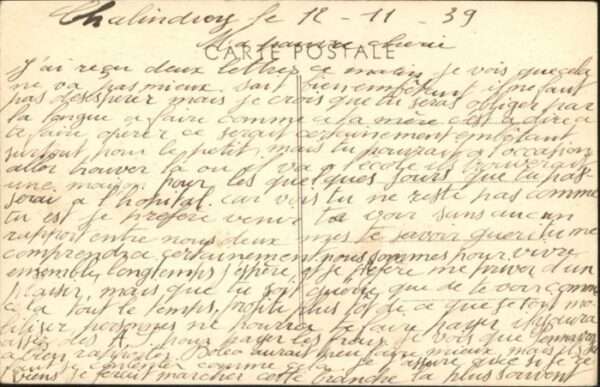 Chalindrey le 12 - 11 - 39
Ma pauvre cherie
CARTE POSTALE
J'ai reçu deux lettres ce matin, je vois que cela
ne va pas mieux. sait bien embêtant il ne faut
pas desesperer mais je crois que tu seras obliger par
la langue a faire comme a ta mère c'est a dire a
te faire operer ce serait certainement embêtant
surtout pour le petit, mais tu pourrais a l'occasion
aller trouver la ou il va a l'école il trouverait
une maison pour les quelques jours que tu pas-
serai a l'hopital. car vois tu ne reste pas comme
tu est je prefere venir te voir sans aucun
rapport entre nous deux mes te savoir guerit tu me
comprendra certainement nous sommes pour vivre
ensemble longtemps j'espère, et je prefere me priver d'un
plaisir, mais que tu soit guérie, que de te voir comme
cela tout le temps. profite plus tot de ce que je soit mo-
biliser, personnes ne pourra te faire payer il y aura
assez des A. pour payer les frais. je vois que
a bien rapporter Boleo aurait peu faire mieux mais il
faut contenter comme cela. Je assure que si je re-
viens je ferait marcher cette branche la plus souvent